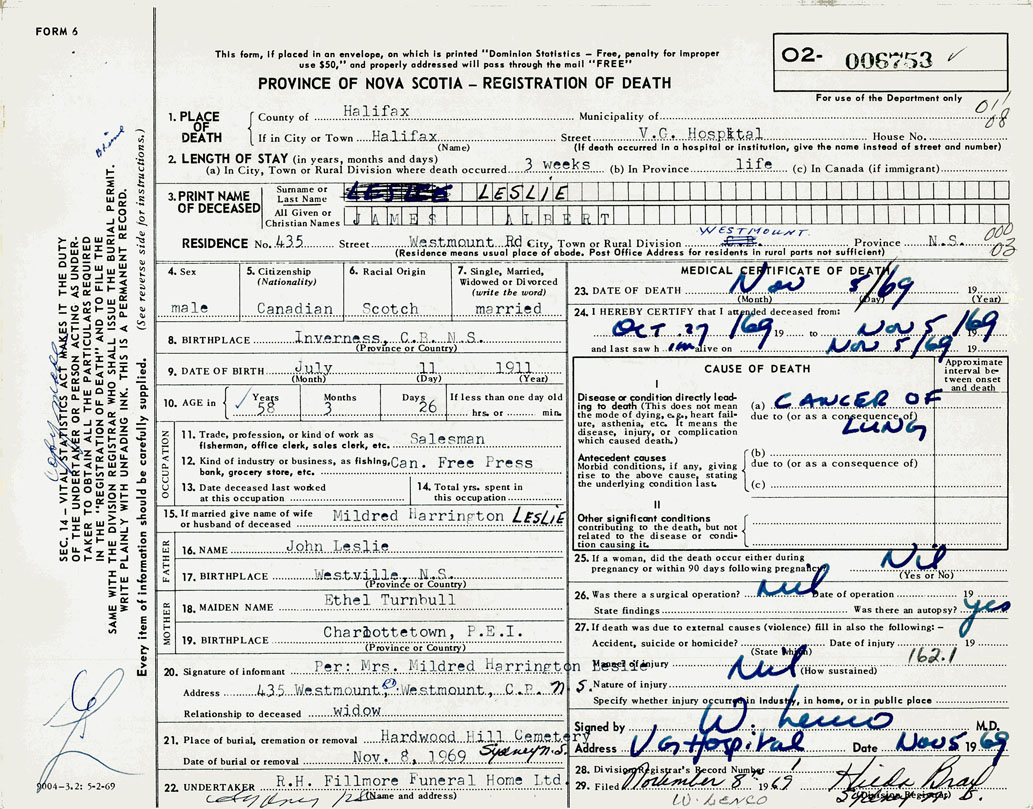 FORM 6
This form, if placed in an envelope, on which is printed "Dominion Statistics – Free, penalty for improper
use $50," and properly addressed will pass through the mail "FREE"
PROVINCE OF NOVA SCOTIA – REGISTRATION OF DEATH
02- 006753 ✓
For use of the Department only
011
08
1. PLACE OF DEATH
County of Halifax Municipality of
If in City or Town Halifax Street V.G. Hospital House No.
(Name) (If death occurred in a hospital or institution, give the name instead of street and number)
2. LENGTH OF STAY (in years, months and days)
(a) In City, Town or Rural Division where death occurred 3 weeks (b) In Province life (c) In Canada (if immigrant)
3. PRINT NAME OF DECEASED
Surname or Last Name LESLIE LESLIE
All Given or Christian Names JAMES ALBERT
RESIDENCE No. 435 Street Westmount Rd City, Town or Rural Division WESTMOUNT Province N.S. 000
03
(Residence means usual place of abode. Post Office Address for residents in rural parts not sufficient)
4. Sex
male
5. Citizenship (Nationality)
Canadian
6. Racial Origin
Scotch
7. Single, Married, Widowed or Divorced (write the word)
married
8. BIRTHPLACE Inverness, C.B. N.S.
(Province or Country)
9. DATE OF BIRTH July 11 1911
(Month) (Day) (Year)
10. AGE in ✓ Years 58 Months 3 Days 26 If less than one day old
hrs. or min.
OCCUPATION
11. Trade, profession, or kind of work as
fisherman, office clerk, sales clerk, etc. Salesman
12. Kind of industry or business, as fishing,
bank, grocery store, etc. Can. Free Press
13. Date deceased last worked
at this occupation
14. Total yrs. spent in
this occupation
15. If married give name of wife
or husband of deceased Mildred Harrington LESLIE
FATHER
16. NAME John Leslie
17. BIRTHPLACE Westville, N.S.
(Province or Country)
MOTHER
18. MAIDEN NAME Ethel Turnbull
19. BIRTHPLACE Charlottetown, P.E.I.
(Province or Country)
20. Signature of informant Per: Mrs. Mildred Harrington Leslie
Address 435 Westmount, Westmount, C.B. N.S.
Relationship to deceased widow
21. Place of burial, cremation or removal Hardwood Hill Cemetery
Date of burial or removal Nov. 8, 1969 Sydney N.S.
22. UNDERTAKER R.H. Fillmore Funeral Home Ltd.
(Name and address)
MEDICAL CERTIFICATE OF DEATH
23. DATE OF DEATH Nov 5/69 19
(Month) (Day) (Year)
24. I HEREBY CERTIFY that I attended deceased from:
OCT 27/69 19 to NOV 5/69 19
and last saw h im alive on NOV 5/69 19
CAUSE OF DEATH
Approximate interval between onset and death
I
Disease or condition directly leading
to death (This does not mean
the mode of dying, e.g., heart failure,
asthenia, etc. It means the
disease, injury, or complication
which caused death.)
(a) CANCER OF
due to (or as a consequence of)
LUNG
Antecedent causes
Morbid conditions, if any, giving
rise to the above cause, stating
the underlying condition last.
(b)
due to (or as a consequence of)
(c)
II
Other significant conditions
contributing to the death, but not
related to the disease or condition
causing it.
25. If a woman, did the death occur either during
pregnancy or within 90 days following pregnancy Nil
(Yes or No)
26. Was there a surgical operation? nil Date of operation 19
State findings Was there an autopsy? yes
27. If death was due to external causes (violence) fill in also the following: –
Accident, suicide or homicide? Date of injury 19
(State Which) 162.1
Manner of injury nil (How sustained)
Nature of injury
Specify whether injury occurred in industry, in home, or in public place
Signed by W. Lenco M.D.
Address VG Hospital Date Nov 5 1969
28. Division Registrar's Record Number
29. Filed November 8 1969
(Division Registrar)
W. LENCO
SEC. 14 – VITAL STATISTICS ACT MAKES IT THE DUTY
OF THE UNDERTAKER OR PERSON ACTING AS UNDERTAKER
TO OBTAIN ALL THE PARTICULARS REQUIRED
IN THE "REGISTRATION OF DEATH" AND TO FILE THE
SAME WITH THE DIVISION REGISTRAR WHO SHALL ISSUE THE BURIAL PERMIT.
WRITE PLAINLY WITH UNFADING INK. THIS IS A PERMANENT RECORD.
Every item of information should be carefully supplied. (See reverse side for instructions.)
9004-3.2: 5-2-69